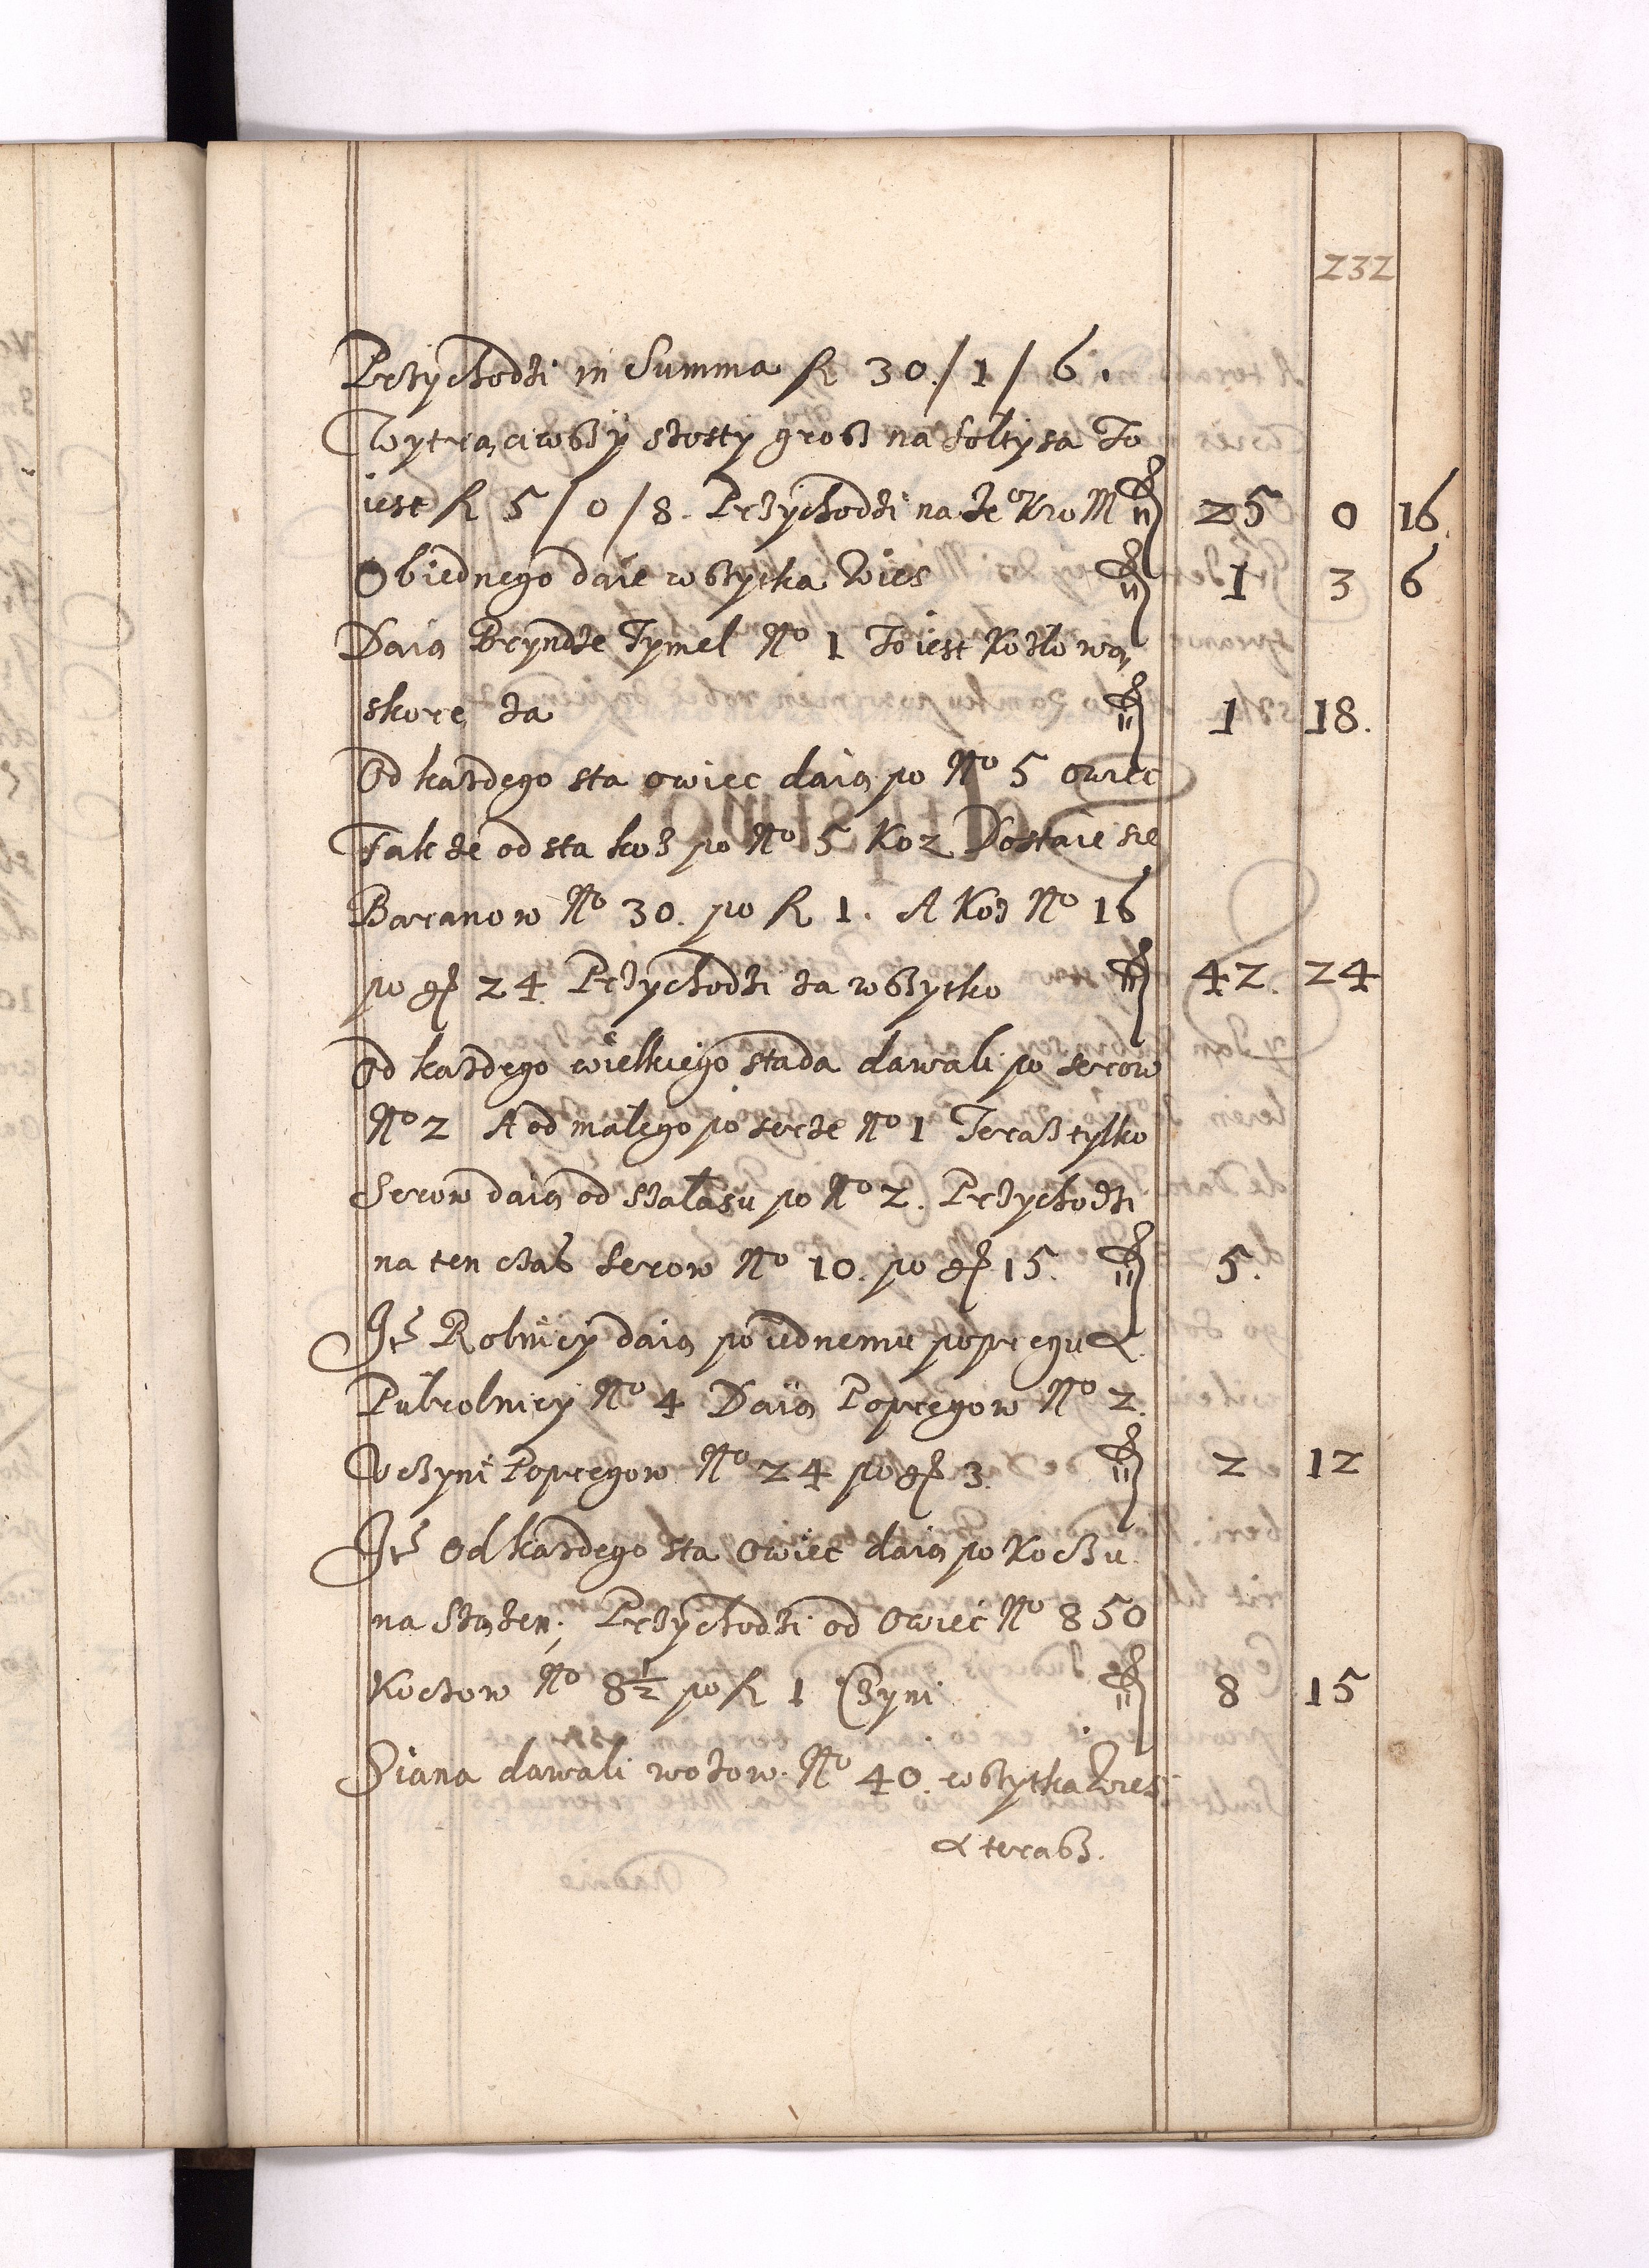 232
Przychodzi in Summa fl 30/1/6.
Wytrąciwszÿ szosty grosz na Sołtysa To
iest fl 5/0/8. Przychodzi na Je° Kro M 25 0 16.
Obiednego daie wszytka Wies 1 3 6
Daią Bryndze Fymel No 1 To iest Kozłową
skorę za 1 18.
Od kazdego sta owiec daią po No 5 owiec
Takze od sta koz po No 5 Koz Dostaie sie
Baranow No 30. po fl 1. A Koz No 16
po gr 24. Przychodzi za wszytko 42. 24
Od kazdego wielkiego stada dawali po serow
No 2 A od małego po serze No 1 Terasz tylko
Serow daią od szałasu po No 2. Przychodzi
na ten czas serow No 10. po gr 15. 5.
Itē Rolnicÿ daią po iednemu popręgu &
Pułrolnicy No 4 Daią Popręgow No 2.
Vczyni Popręgow No 24 po gr 3. 2 12
Itē Od kazdego sta Owiec daią po Koczu
na Sązen; Przychodzi od Owiec No 850
Koczow No 8½ po fl 1 Czyni 8 15
Siana dawali wozow No 40. wszytka Wies
& terasz.